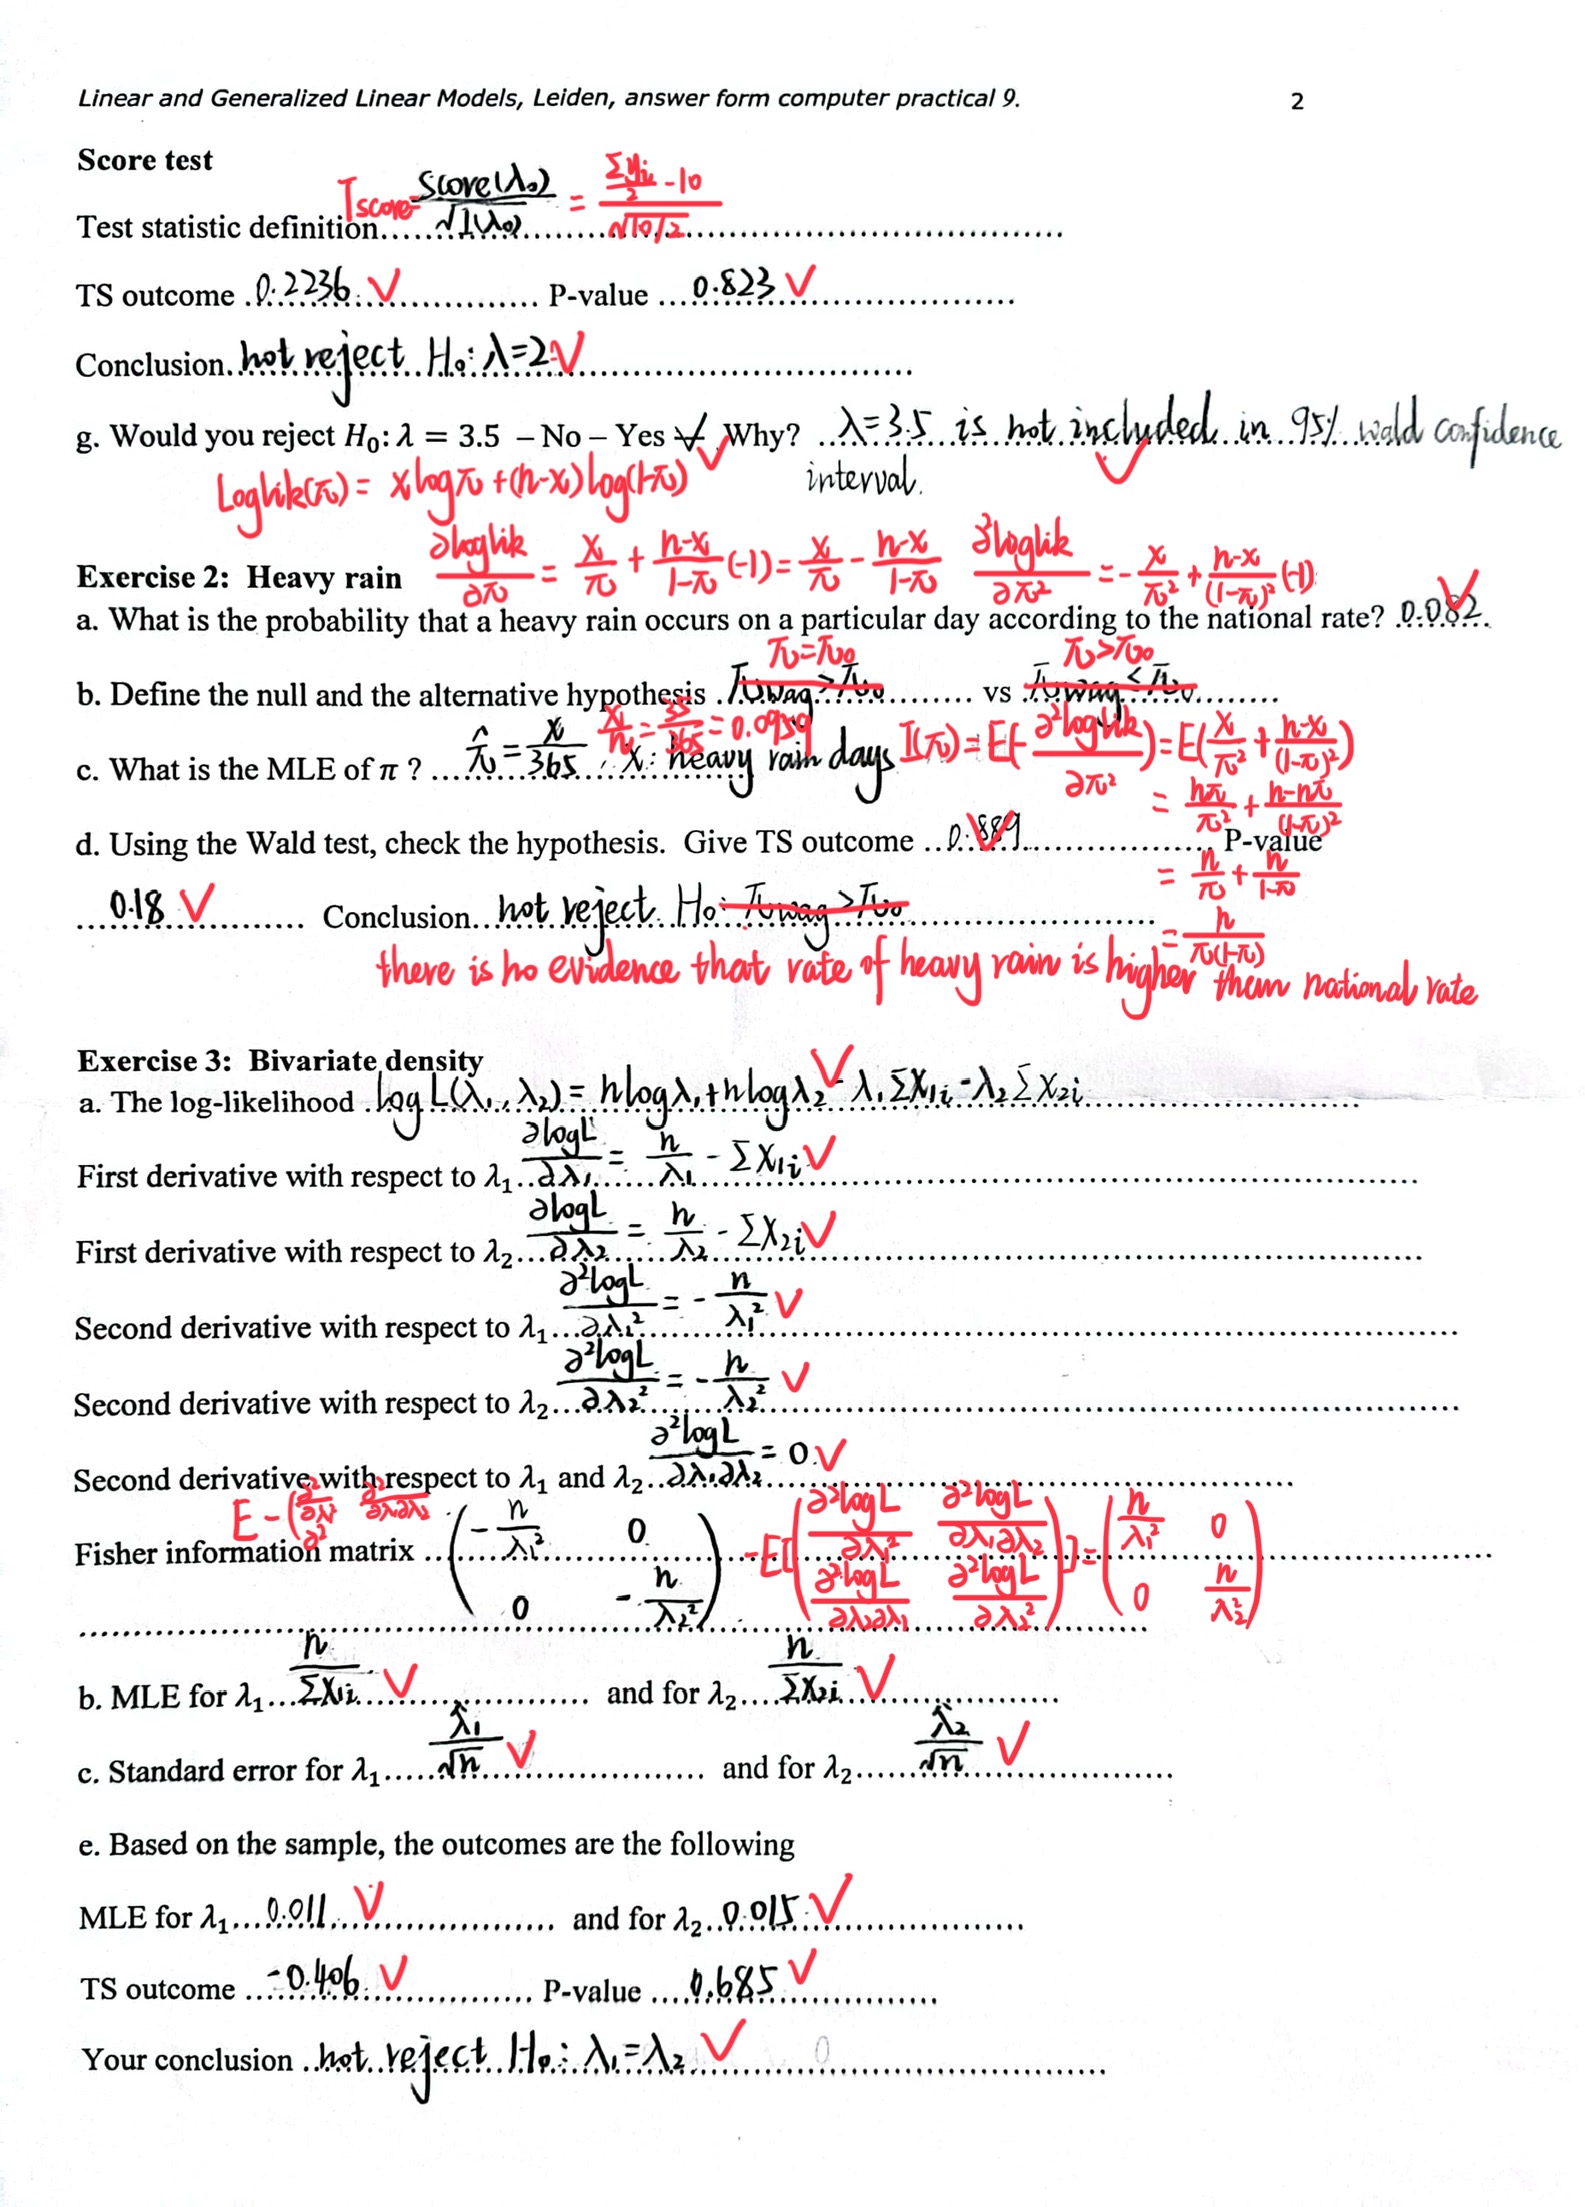 Linear and Generalized Linear Models, Leiden, answer form computer practical 9. 2
Score test
Test statistic definition Tscore = Score(λ₀)/√I(λ₀) = (Σyᵢ/2 - 10)/√(10/2)
TS outcome 0.2236 V P-value 0.823 V
Conclusion not reject H₀: λ=2 V
g. Would you reject H₀: λ = 3.5 – No – Yes V Why? λ=3.5 is not included in 95% wald confidence
interval.
Loglik(π) = x logπ + (n-x) log(1-π)
∂loglik/∂π = x/π + (n-x)/(1-π) (-1) = x/π - (n-x)/(1-π) ∂²loglik/∂π² = -x/π² + (n-x)/(1-π)² (-1)
Exercise 2: Heavy rain
a. What is the probability that a heavy rain occurs on a particular day according to the national rate? 0.082 V
π=π₀ π>π₀
b. Define the null and the alternative hypothesis πwag > π₀ vs πwag < π₀
x/n = 35/365 = 0.0959
c. What is the MLE of π ? π̂ = x/365, x: heavy rain days I(π) = E(-∂²loglik/∂π²) = E(x/π² + (n-x)/(1-π)²)
= nπ/π² + (n-nπ)/(1-π)²
d. Using the Wald test, check the hypothesis. Give TS outcome 0.889 V P-value
= n/π + n/(1-π)
0.18 V Conclusion not reject H₀: πwag > π₀
= n/π(1-π)
there is no evidence that rate of heavy rain is higher them national rate
Exercise 3: Bivariate density
a. The log-likelihood log L(λ₁, λ₂) = nlogλ₁ + nlogλ₂ - λ₁ΣX₁ᵢ - λ₂ΣX₂ᵢ V
First derivative with respect to λ₁ ∂logL/∂λ₁ = n/λ₁ - ΣX₁ᵢ V
First derivative with respect to λ₂ ∂logL/∂λ₂ = n/λ₂ - ΣX₂ᵢ V
Second derivative with respect to λ₁ ∂²logL/∂λ₁² = -n/λ₁² V
Second derivative with respect to λ₂ ∂²logL/∂λ₂² = -n/λ₂² V
Second derivative with respect to λ₁ and λ₂ ∂²logL/∂λ₁∂λ₂ = 0 V
Fisher information matrix (-n/λ₁² 0 0 -n/λ₂²) -E[(∂²logL/∂λ₁² ∂²logL/∂λ₁∂λ₂ ∂²logL/∂λ₂∂λ₁ ∂²logL/∂λ₂²)] = (n/λ₁² 0 0 n/λ₂²)
b. MLE for λ₁ n/ΣX₁ᵢ V and for λ₂ n/ΣX₂ᵢ V
c. Standard error for λ₁ λ̂₁/√n V and for λ₂ λ̂₂/√n V
e. Based on the sample, the outcomes are the following
MLE for λ₁ 0.011 V and for λ₂ 0.015 V
TS outcome -0.406 V P-value 0.685 V
Your conclusion not reject H₀: λ₁=λ₂ V